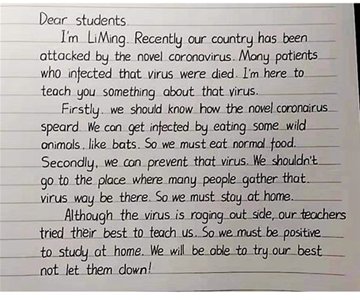 Dear students.
I'm LiMing. Recently our country has been
attacked by the novel coronavirus. Many patients
who infected that virus were died. I'm here to
teach you something about that virus.
Firstly. we should know how the novel coronairus
speard. We can get infected by eating some wild
animals. like bats. So we must eat normal food.
Secondly, we can prevent that virus. We shouldn't
go to the place where many people gather that
virus way be there. So we must stay at home.
Although the virus is raging out side, our teachers
tried their best to teach us. So we must be positive
to study at home. We will be able to try our best
not let them down!